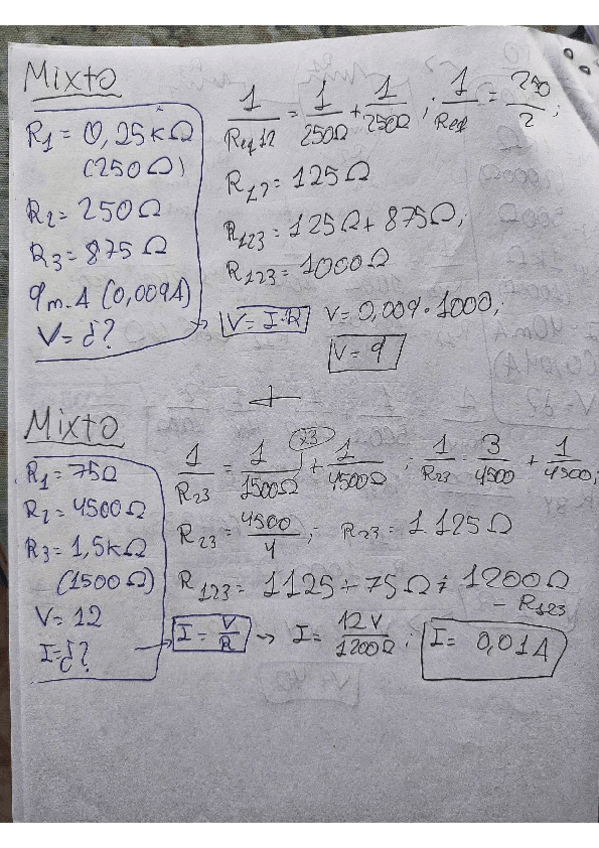 Mixto
R₁ = 0,25kΩ
(250Ω)
R₂ = 250Ω
R₃ = 875Ω
9m.A (0,009A)
V = ¿?
1/Req12 = 1/250Ω + 1/250Ω ; 1/Req = 250/2 ;
R₁₂ = 125Ω
R₁₂₃ = 125Ω + 875Ω;
R₁₂₃ = 1000Ω
→ V = I·R V = 0,009·1000;
V = 9
Mixto
R₁ = 75Ω
R₂ = 4500Ω
R₃ = 1,5kΩ
(1500Ω)
V = 12
I = ¿?
x3
1/R₂₃ = 1/1500Ω + 1/4500Ω ; 1/R₂₃ = 3/4500 + 1/4500;
R₂₃ = 4500/4 ; R₂₃ = 1.125Ω
R₁₂₃ = 1125 + 75Ω ; 1200Ω
- R₁₂₃
→ I = V/R → I = 12V/1200Ω ; I = 0,01A